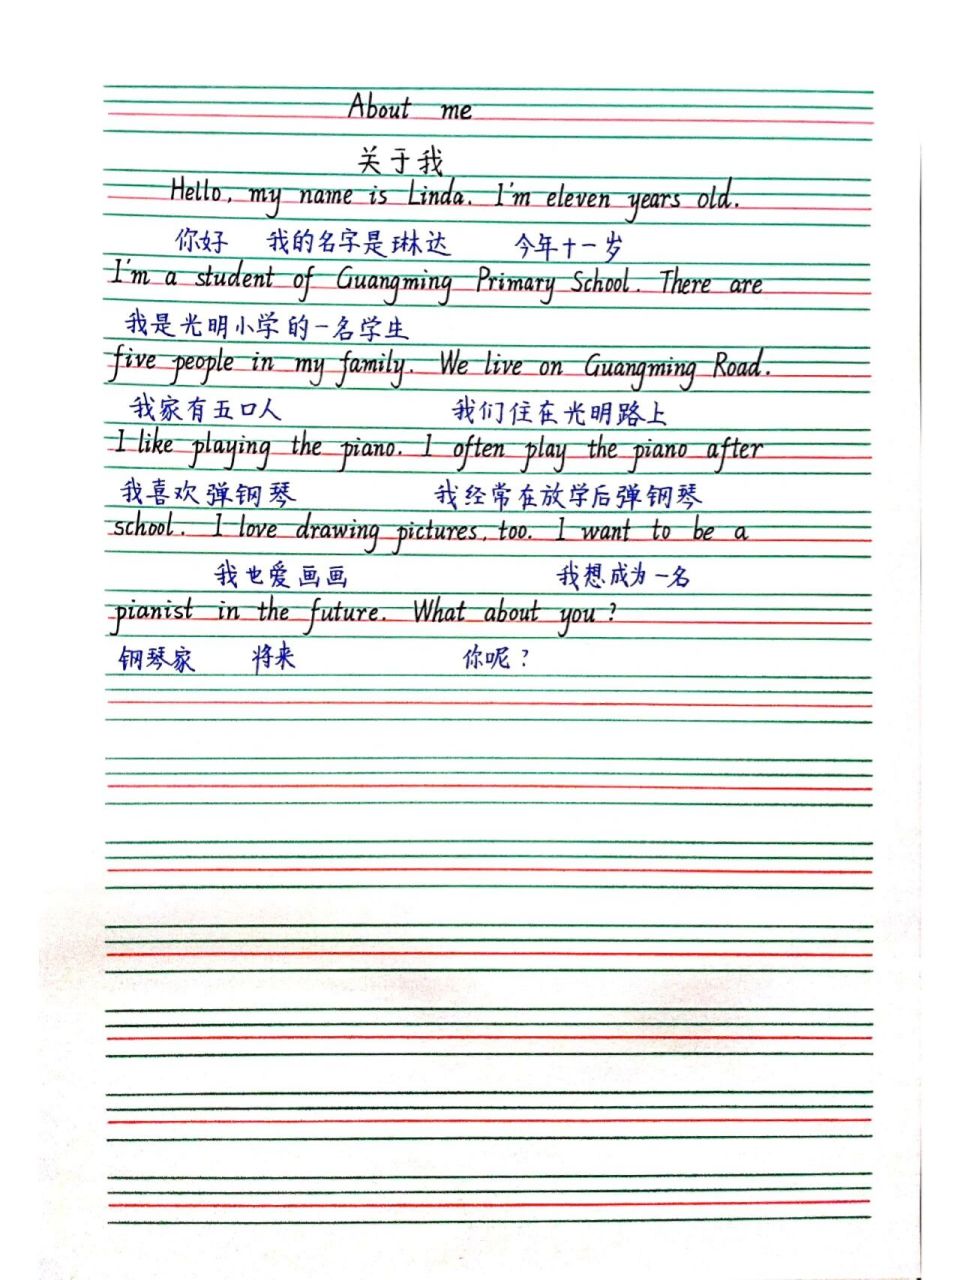 About me
关于我
Hello, my name is Linda. I'm eleven years old.
你好 我的名字是琳达 今年十一岁
I'm a student of Guangming Primary School. There are
我是光明小学的一名学生
five people in my family. We live on Guangming Road.
我家有五口人 我们住在光明路上
I like playing the piano. I often play the piano after
我喜欢弹钢琴 我经常在放学后弹钢琴
school. I love drawing pictures, too. I want to be a
我也爱画画 我想成为一名
pianist in the future. What about you?
钢琴家 将来 你呢?